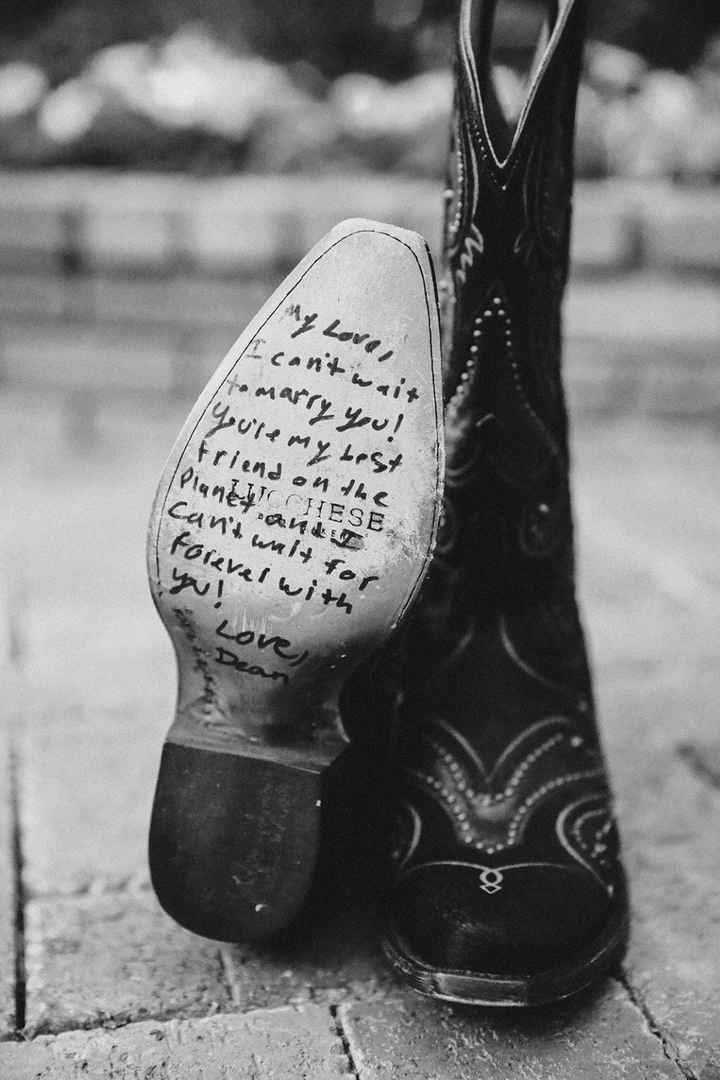 My Love,
I can't wait
to marry you!
You're my best
friend on the
Planet and I
LUCCHESE
can't wait for
forever with
you!
Love,
Dean